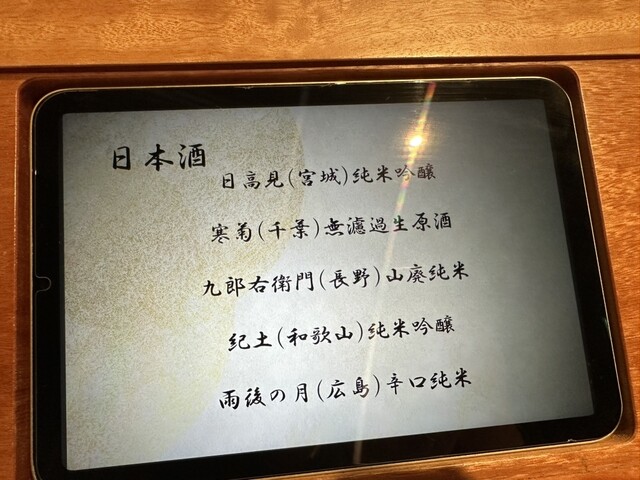 日本酒
日高見(宮城)純米吟醸
寒菊(千葉)無濾過生原酒
九郎右衛門(長野)山廃純米
紀土(和歌山)純米吟醸
雨後の月(広島)辛口純米